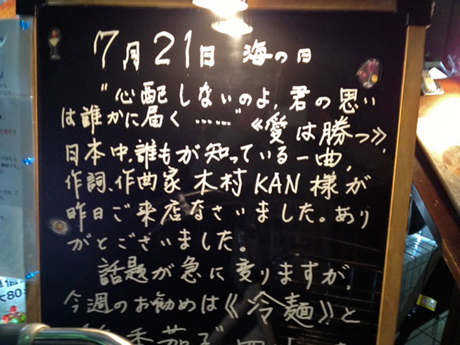 7月21日 海の日
"心配しないのよ,君の思い
は誰かに届く……"《愛は勝つ》,
日本中,誰もが知っている一曲,
作詞、作曲家 木村 KAN 様が
昨日ご来店なさいました。あり
がとございました。
話題が急に変りますが,
今週のお勧めは《冷麺》と